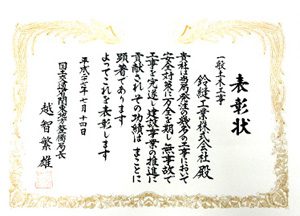 表彰状
一般土木工事
鈴縫工業株式会社 殿
貴社は当局発注の幾多の工事において
安全対策に万全を期し無事故で
工事を完遂し建設事業の推進に
貢献されその功績は まことに
顕著であります
よってこれを表彰します
平成二十八年七月十四日
国土交通省関東地方整備局長
越智繁雄